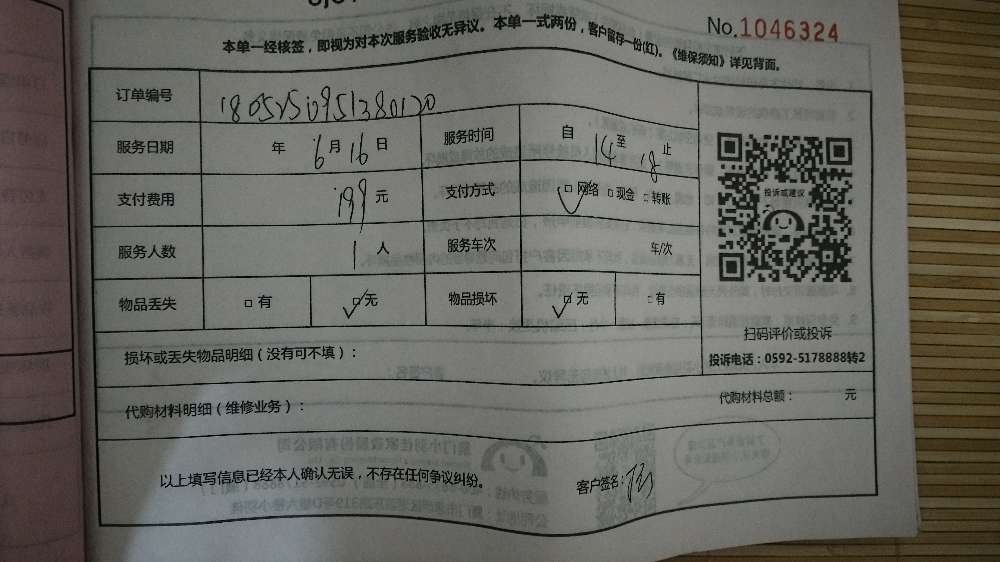 No.1046324
本单一经核签，即视为对本次服务验收无异议。本单一式两份，客户留存一份(红)。《维保须知》详见背面。
订单编号 1805250951380120
服务日期 年 6月16日 服务时间 自 14 至 18 止
支付费用 199 元 支付方式 □网络 □现金 □转账
服务人数 1 人 服务车次 车/次
物品丢失 □有 □无 物品损坏 □无 □有
投诉或建议
扫码评价或投诉
投诉电话：0592-5178888转2
损坏或丢失物品明细（没有可不填）：
代购材料明细（维修业务）： 代购材料总额： 元
以上填写信息已经本人确认无误，不存在任何争议纠纷。 客户签名：